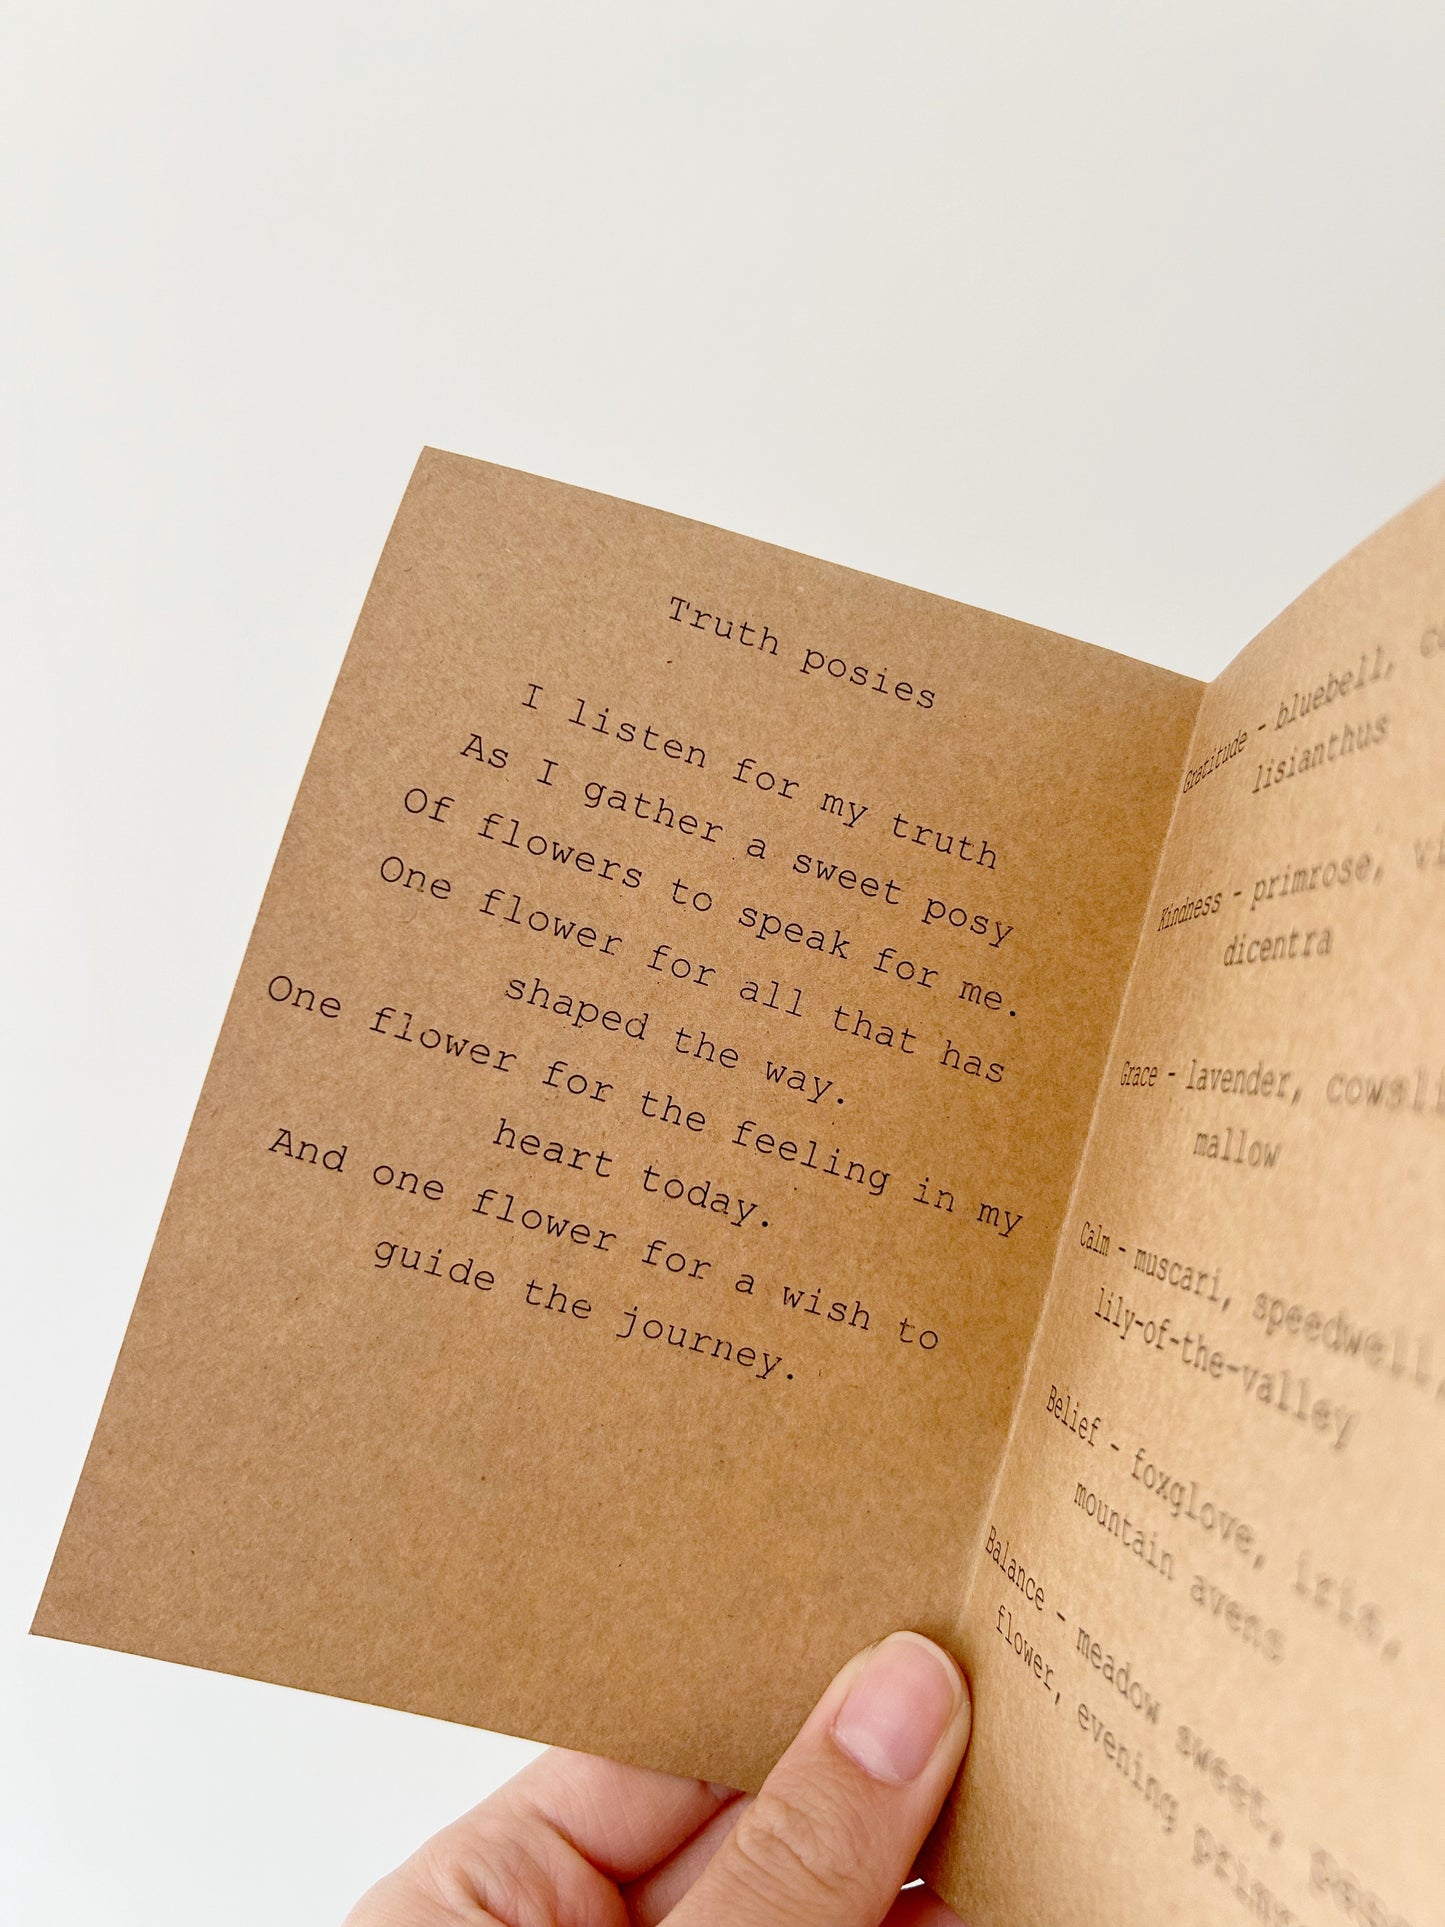 Truth posies
I listen for my truth
As I gather a sweet posy
Of flowers to speak for me.
One flower for all that has
shaped the way.
One flower for the feeling in my
heart today.
And one flower for a wish to
guide the journey.
Gratitude - bluebell,
lisianthus
Kindness - primrose,
dicentra
Grace - lavender,
mallow
Calm - muscari, speedwell,
lily-of-the-valley
Belief - foxglove, iris,
mountain avens
Balance - meadow sweet,
flower, evening